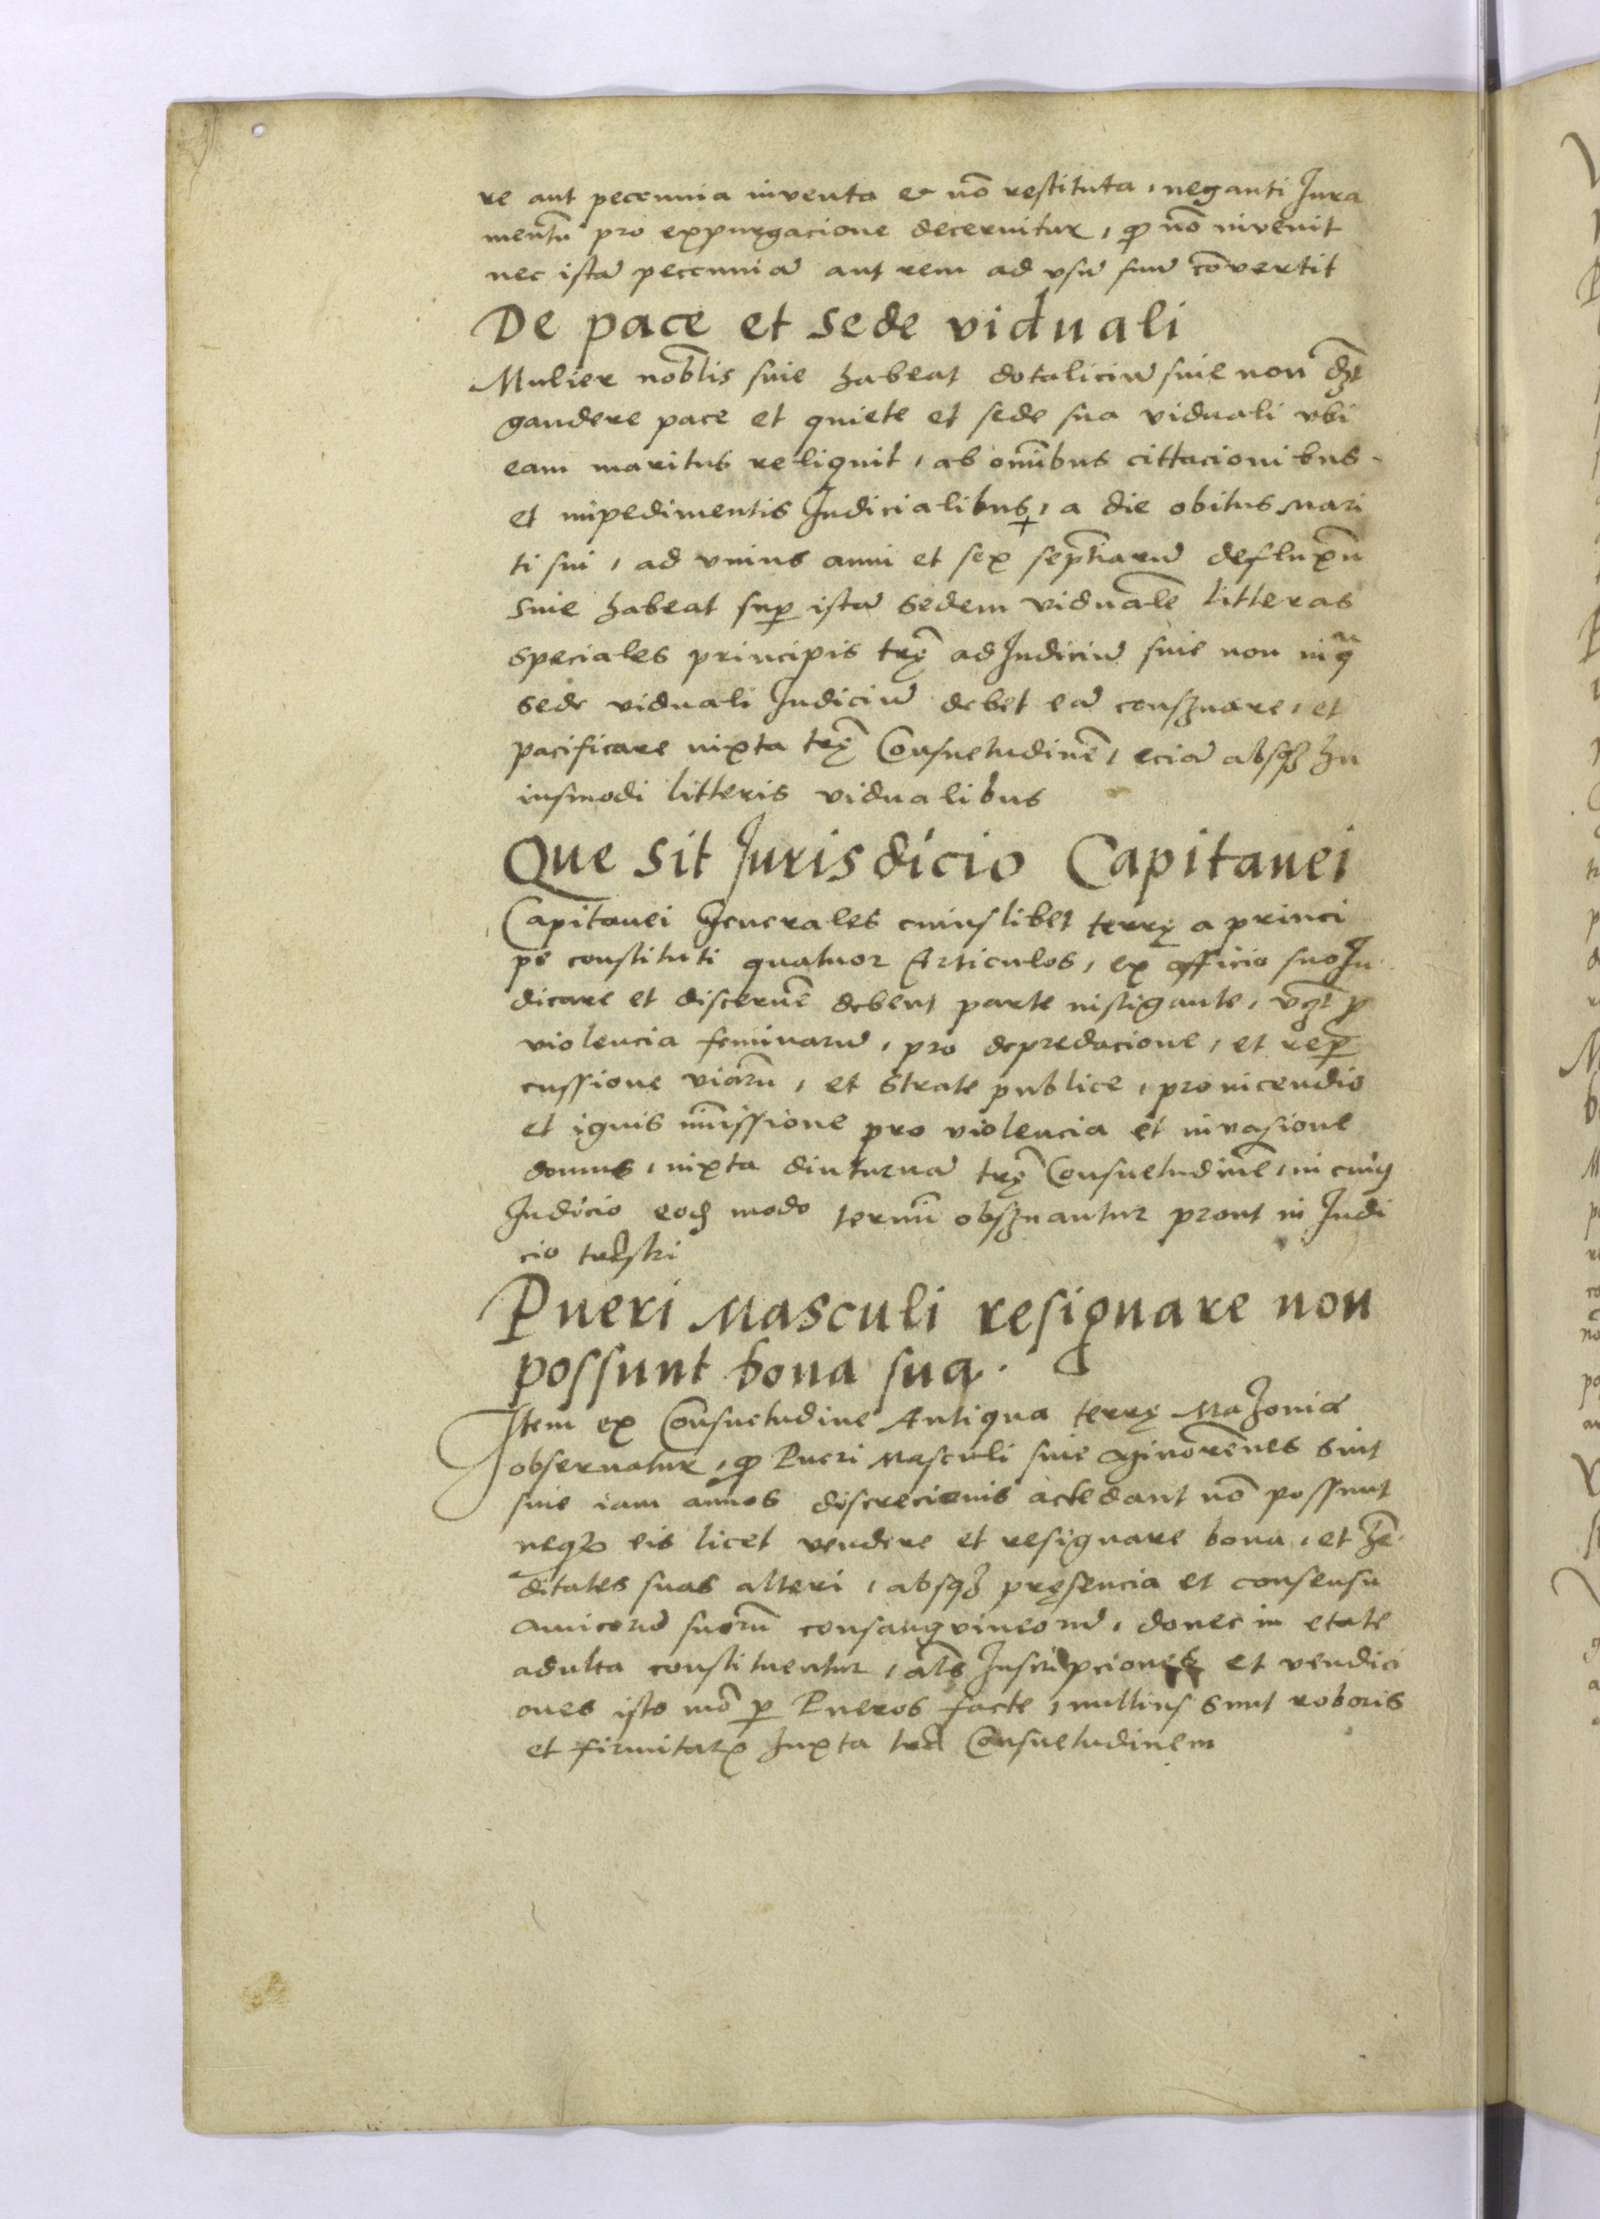 re aut peccunia inventa et nō restituta, neganti Jura
mentū pro expurgacione decernitur, qƺ nō invenit
nec istā peccuniā aut rem ad vsū suū cōvertit
De pace et sede viduali
Mulier nobl̄is siue habeat dotaliciū siue non dꝫt
gaudere pace et quiete et sede sua viduali vbi
eam maritus reliquit, ab omībus cittacionibus
et impedimentis Judicialibus, a die obitus mari
ti sui, ad vnius anni et sex septīarū defluxū
siue habeat suꝑ istā sedem vidualē litteras
speciales principis trę̄ ad Judiciū siue non in
sede viduali Judiciū debet eā conſꝫuare, et
pacificare iuxta trę̄ Consuetudinē, eciā absqꝫ hu
iusmodi litteris vidualibus
Que sit Jurisdicio Capitanei
Capitanei Generales cuiuslibet terrę a princi
pe constituti quatuor Articulos, ex officio suo Ju
dicare et discernē debent parte instigante, vꝫt ꝓ
violencia feminarū, pro depredacione, et reꝑ
cussione viarū, et Strate publice, pro incendio
et ignis im̄issione pro violencia et invasione
domus, iuxta diuturnā trę̄ Consuetudinē, in cuiꝯ
Judicio eodꝫ modo termī obsꝫuantur prout in Judi
cio trēstri
Pueri Masculi resignare non
possunt bona sua.
Item ex Consuetudine Antiqua terrę Mazoniæ
obseruatur, qƺ Pueri Masculi siue minorēnes sint
siue iam annos discrecionis accedant nō possunt
neqꝫ eis licet vendere et resignare bona, et hē
ditates suas alteri, absqꝫ pręsencia et consensu
amicorū suorū consangvineorū, donec in etate
adulta constituentur, al̄s Inscripciones et vendici
ones isto mō ꝑ Pueros facte, nullius sunt roboris
et firmitatꝭ Juxta trę̄ Consuetudinem